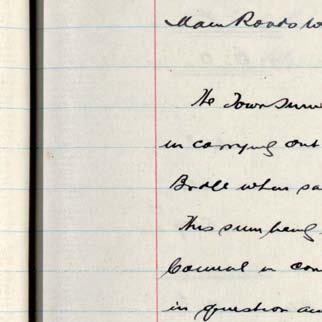 Main Roads W
The Town Surv
in carrying out
Bridle when sa
This sum being
Council in con
in question an